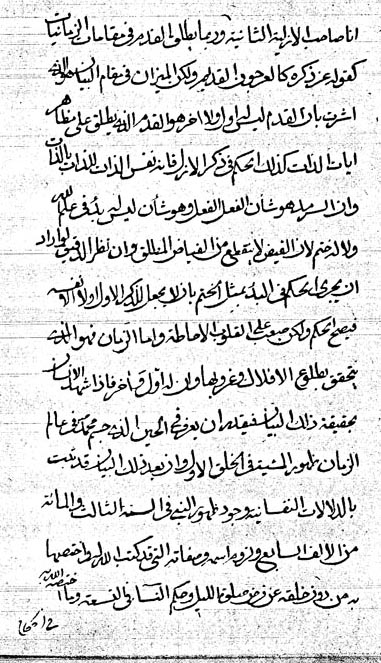 انا صاحب الازلية الثانية وربما يطلق القديم في مقامات الزمانيات
كقوله عز ذكره كالعرجون القديم ولكن الميزان في مقام البيان هو الذي
اشرت بان القدم ليس له اول ولا اخر هو القدم الذي يطلق على مظاهر
ايات الذات كذلك الحكم في ذكر الازل فانه نفس الذات للذات بالذات
وان السرمد هو شأن الفعل وهو شأن ليس له بدء في علم
ولا له ختم لان الفيض لا ينقطع من الفياض المطلق وان نظر الدقيق لو اراد
ان يجري الحكم في البدء بمثل الختم بان لا يجعل لذكر الاول اولا الا نفسه
فيصح الحكم ولكن صعب على القلوب الاحاطة واما الزمان فهو الذي
يتحقق بطلوع الافلاك وغروبها وان له اول واخر فاذا شهد الانسان
بحقيقة ذلك البيان فيقدر ان يعرف في الحين الذي جسم محمد في عالم
الزمان ظهور المشية في الخلق الاول وان بعد ذلك البيان قد ثبت
بالدلالات النفسانية وجود ظهور النبي في السنة الثالث والمائة
من الالف السابع ولزم اسمه وصفاته التي قد كتب الله له واختصها
به من دون خلقه عن فرض صلوة الليل وحكم النساء في التسعة وما اختصه الله